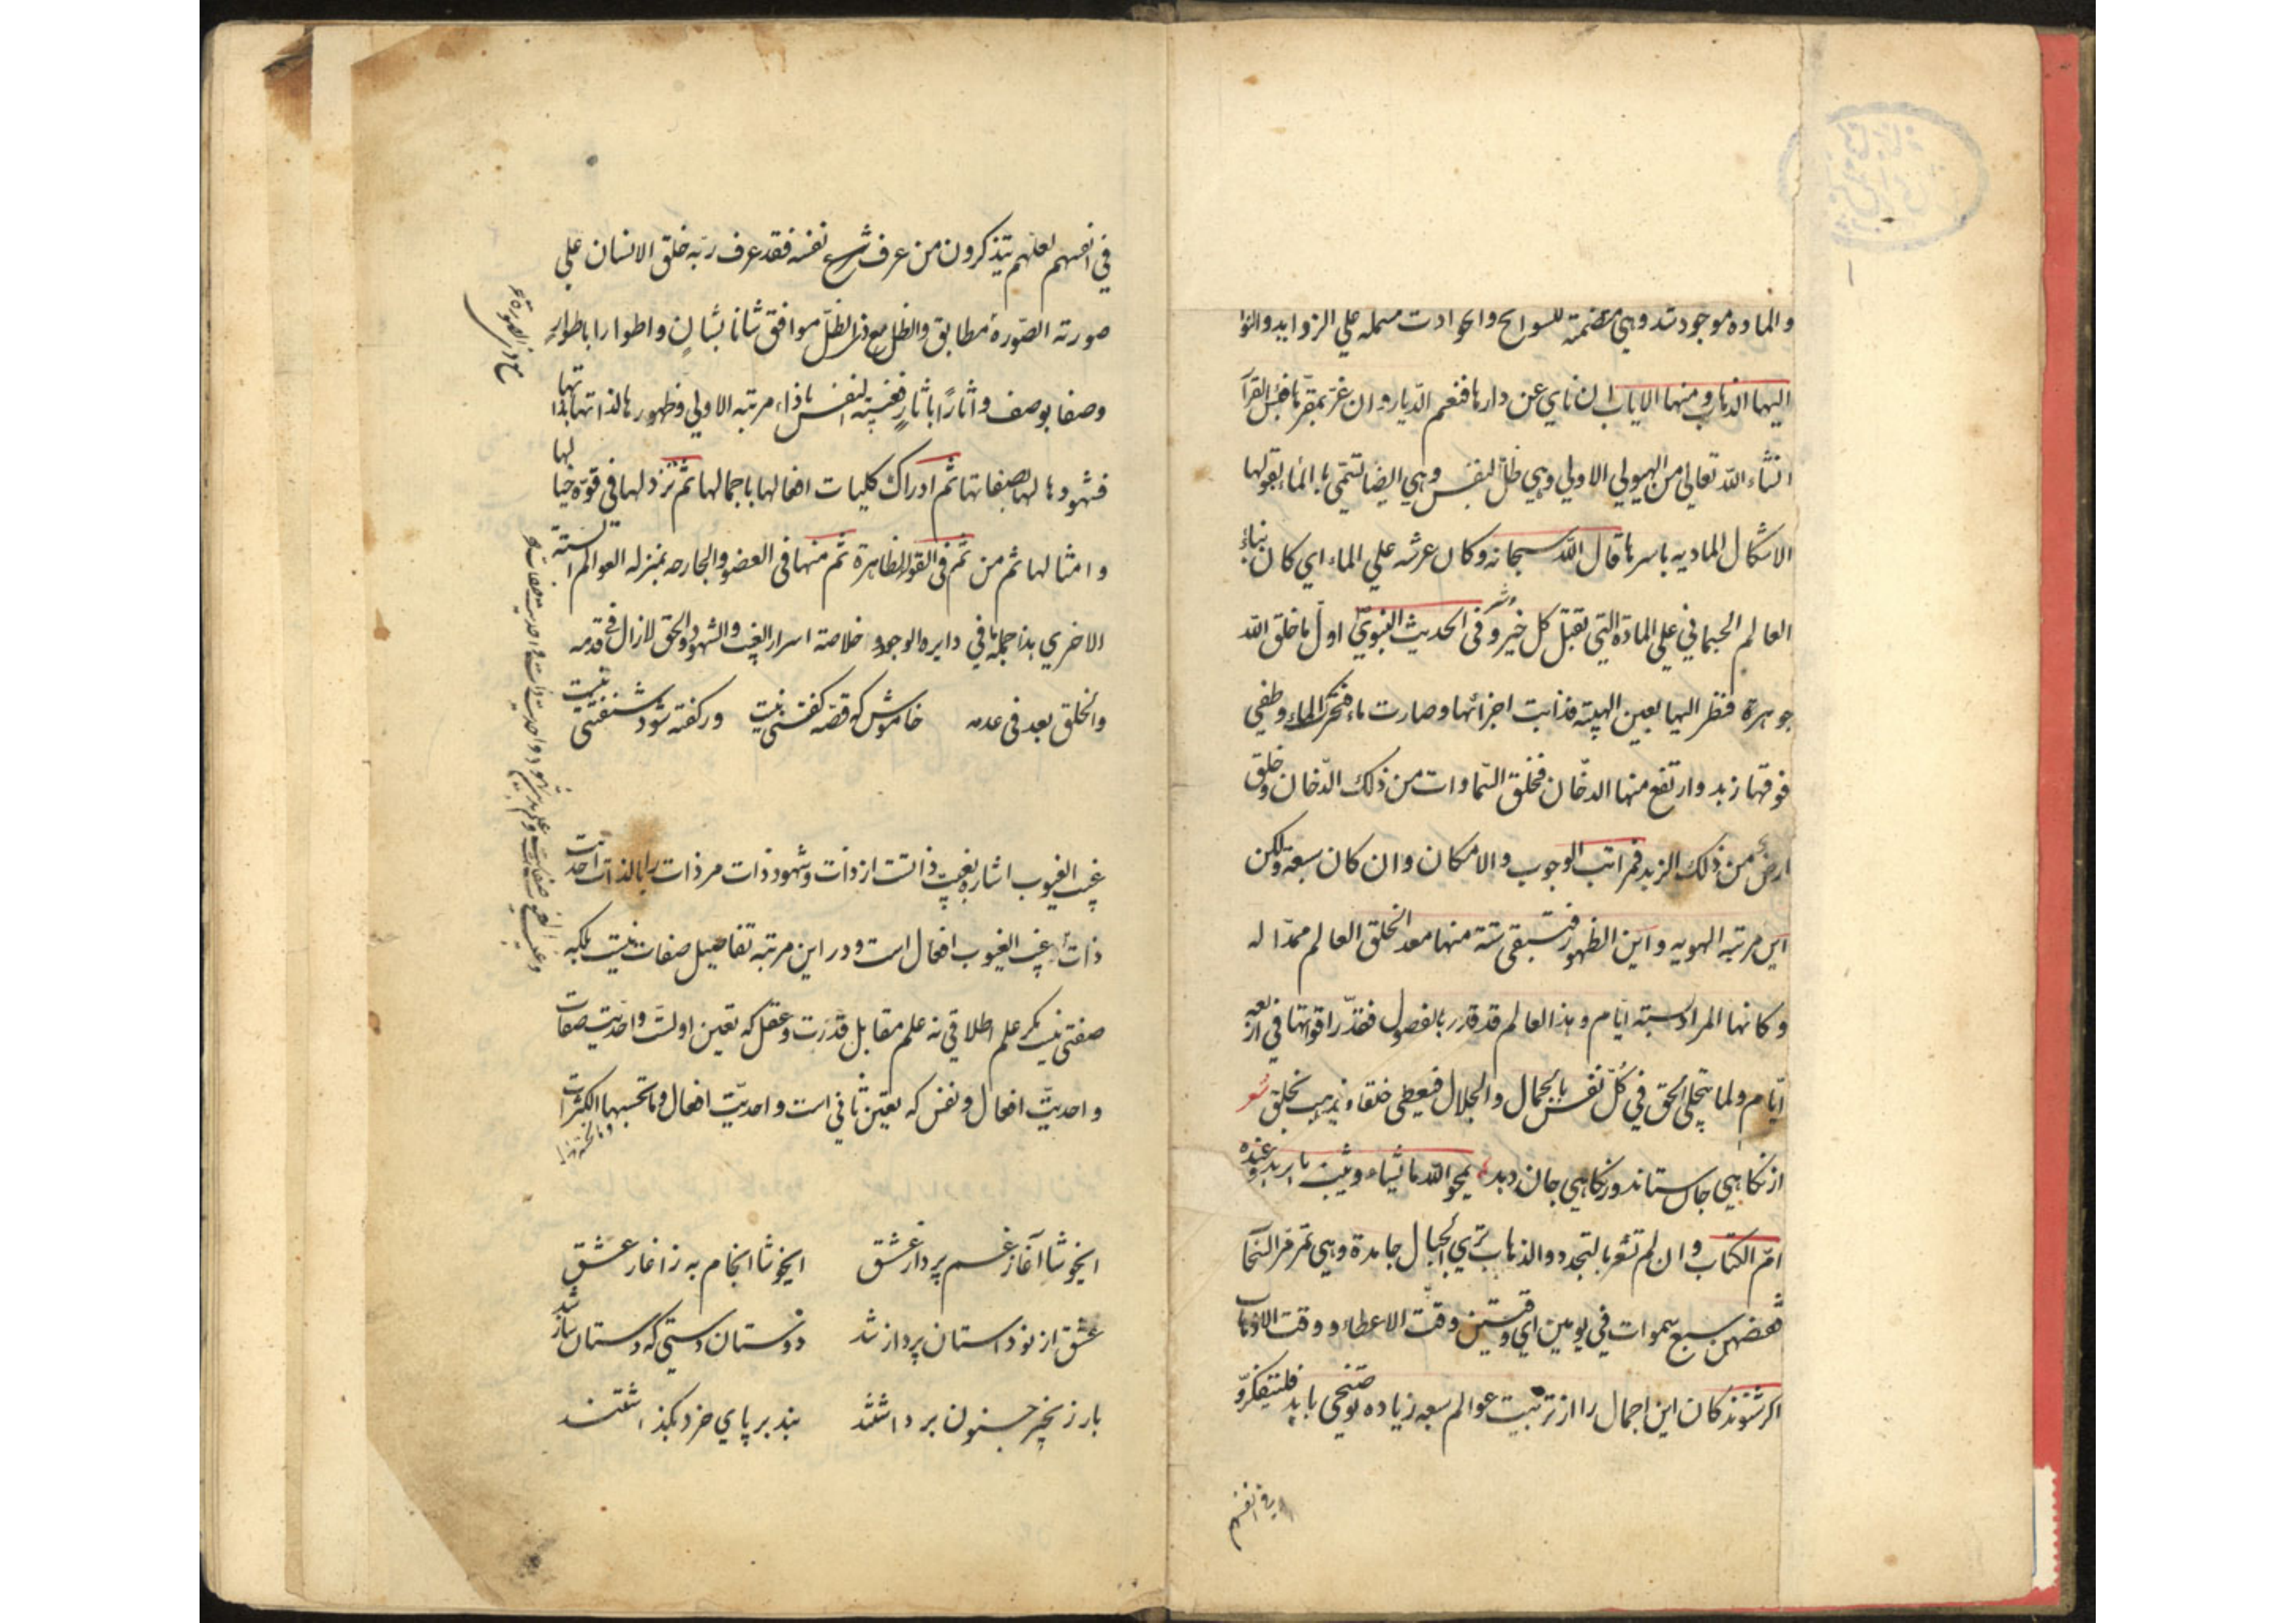 والماده موجود شد وهي متضمنة للسوانح والحوادث مشمله علي الزوايد والنوا
اليها الذهاب ومنها الاياب ان ناي عن دارها فنعم الديار وان غر بمقرها فبئس القرآ
انشاء الله تعالي من الهيولي الاولي وهي ظل النفس وهي ايضا تسمي بالماء لقبولها
الاشكال الماديه باسرها قال الله سبحانه وكان عرشه علي الماء اي كان بناء
العالم الجسماني علي المادة التي تقبل كل خير وشر وفي الحديث النبوي اول ما خلق الله
جوهرة فنظر اليها بعين الهيبة فذابت اجزائها وصارت ماء فتحرك الماء وطفي
فوقها زبد وارتفع منها الدخان فخلق السماوات من ذلك الدخان وخلق
ارض من ذلك الزبد فمراتب الوجوب والامكان وان كان سبعة ولكن
اين مرتبه الهويه واين الظهور فتبقي ستة منها معد الخلق العالم ممدا له
وكانها المراد بستة ايام وهذا العالم قد قدر بالفصول فقدر اقواتها في اربعة
ايام ولما يتجلي الحق في كل نفس بالجمال والجلال فيعطي خلقا ويذهب بخلق شعر
از نكاهي جان ستاند وز نكاهي جان دهد يمحو الله ما يشاء ويثبت ما يريد وعنده
ام الكتاب وان لم تشعر بالتجدد والذهاب تري الجبال جامدة وهي تمر مر السحا
فقضيهن سبع سموات في يومين اي وقتين وقت الاعطاء ووقت الاذهاب
اكر شنوندكان اين اجمال را از ترتيب عوالم سبعه زياده توضحي بايد فليتفكروا
في انفسهم
في انفسهم لعلهم يتذكرون من عرف نفسه فقد عرف ربه خلق الانسان علي
صورته الصورة مطابق والظل مع ذي الظل موافق شانا بشان واطوارا باطوار
وصفا بوصف واثارا باثار فغيبته النفس باذاء مرتبه الاولي وظهورها لذاتها بذاتها
فشهودها لها بصفاتها ثم ادراك كليات افعالها باجمالها ثم تنزلها في قوة خيا لها
وامثالها ثم من ثم في القوه الظاهرة ثم منها في العضو والجارحه بمنزله العوالم الستة
الاخري هذا جمله ما في دايره الوجود و خلاصة اسرار الغيب والشهود والحق لازال في قدمه
والخلق بعد في عدمه خاموش كه قصه كفتني نيست ور كفته شود شنفتني نيست
غيب الغيوب اشاره بغيب ذاتست از ذات وشهود ذات مر ذات را بالذات احديت
ذات غيب الغيوب افعال است و در اين مرتبه تفاصيل صفات نيست بلكه
صفتي نيست مكر علم اطلاقي نه علم مقابل قدرت وعقل كه تعين اولست واحديت صفات
و احديت افعال ونفس كه تعين ثاني است و احديت افعال وما تحسبها الكثرات
ايخوشا آغاز غم پرداز عشق ايخوشا انجام به ز اغاز عشق
عشق از نو داستان پرداز شد دوستان دستي كه دستان ساز شد
بار زنجير جنون برداشتند بند بر پاي خرد بكذاشتند